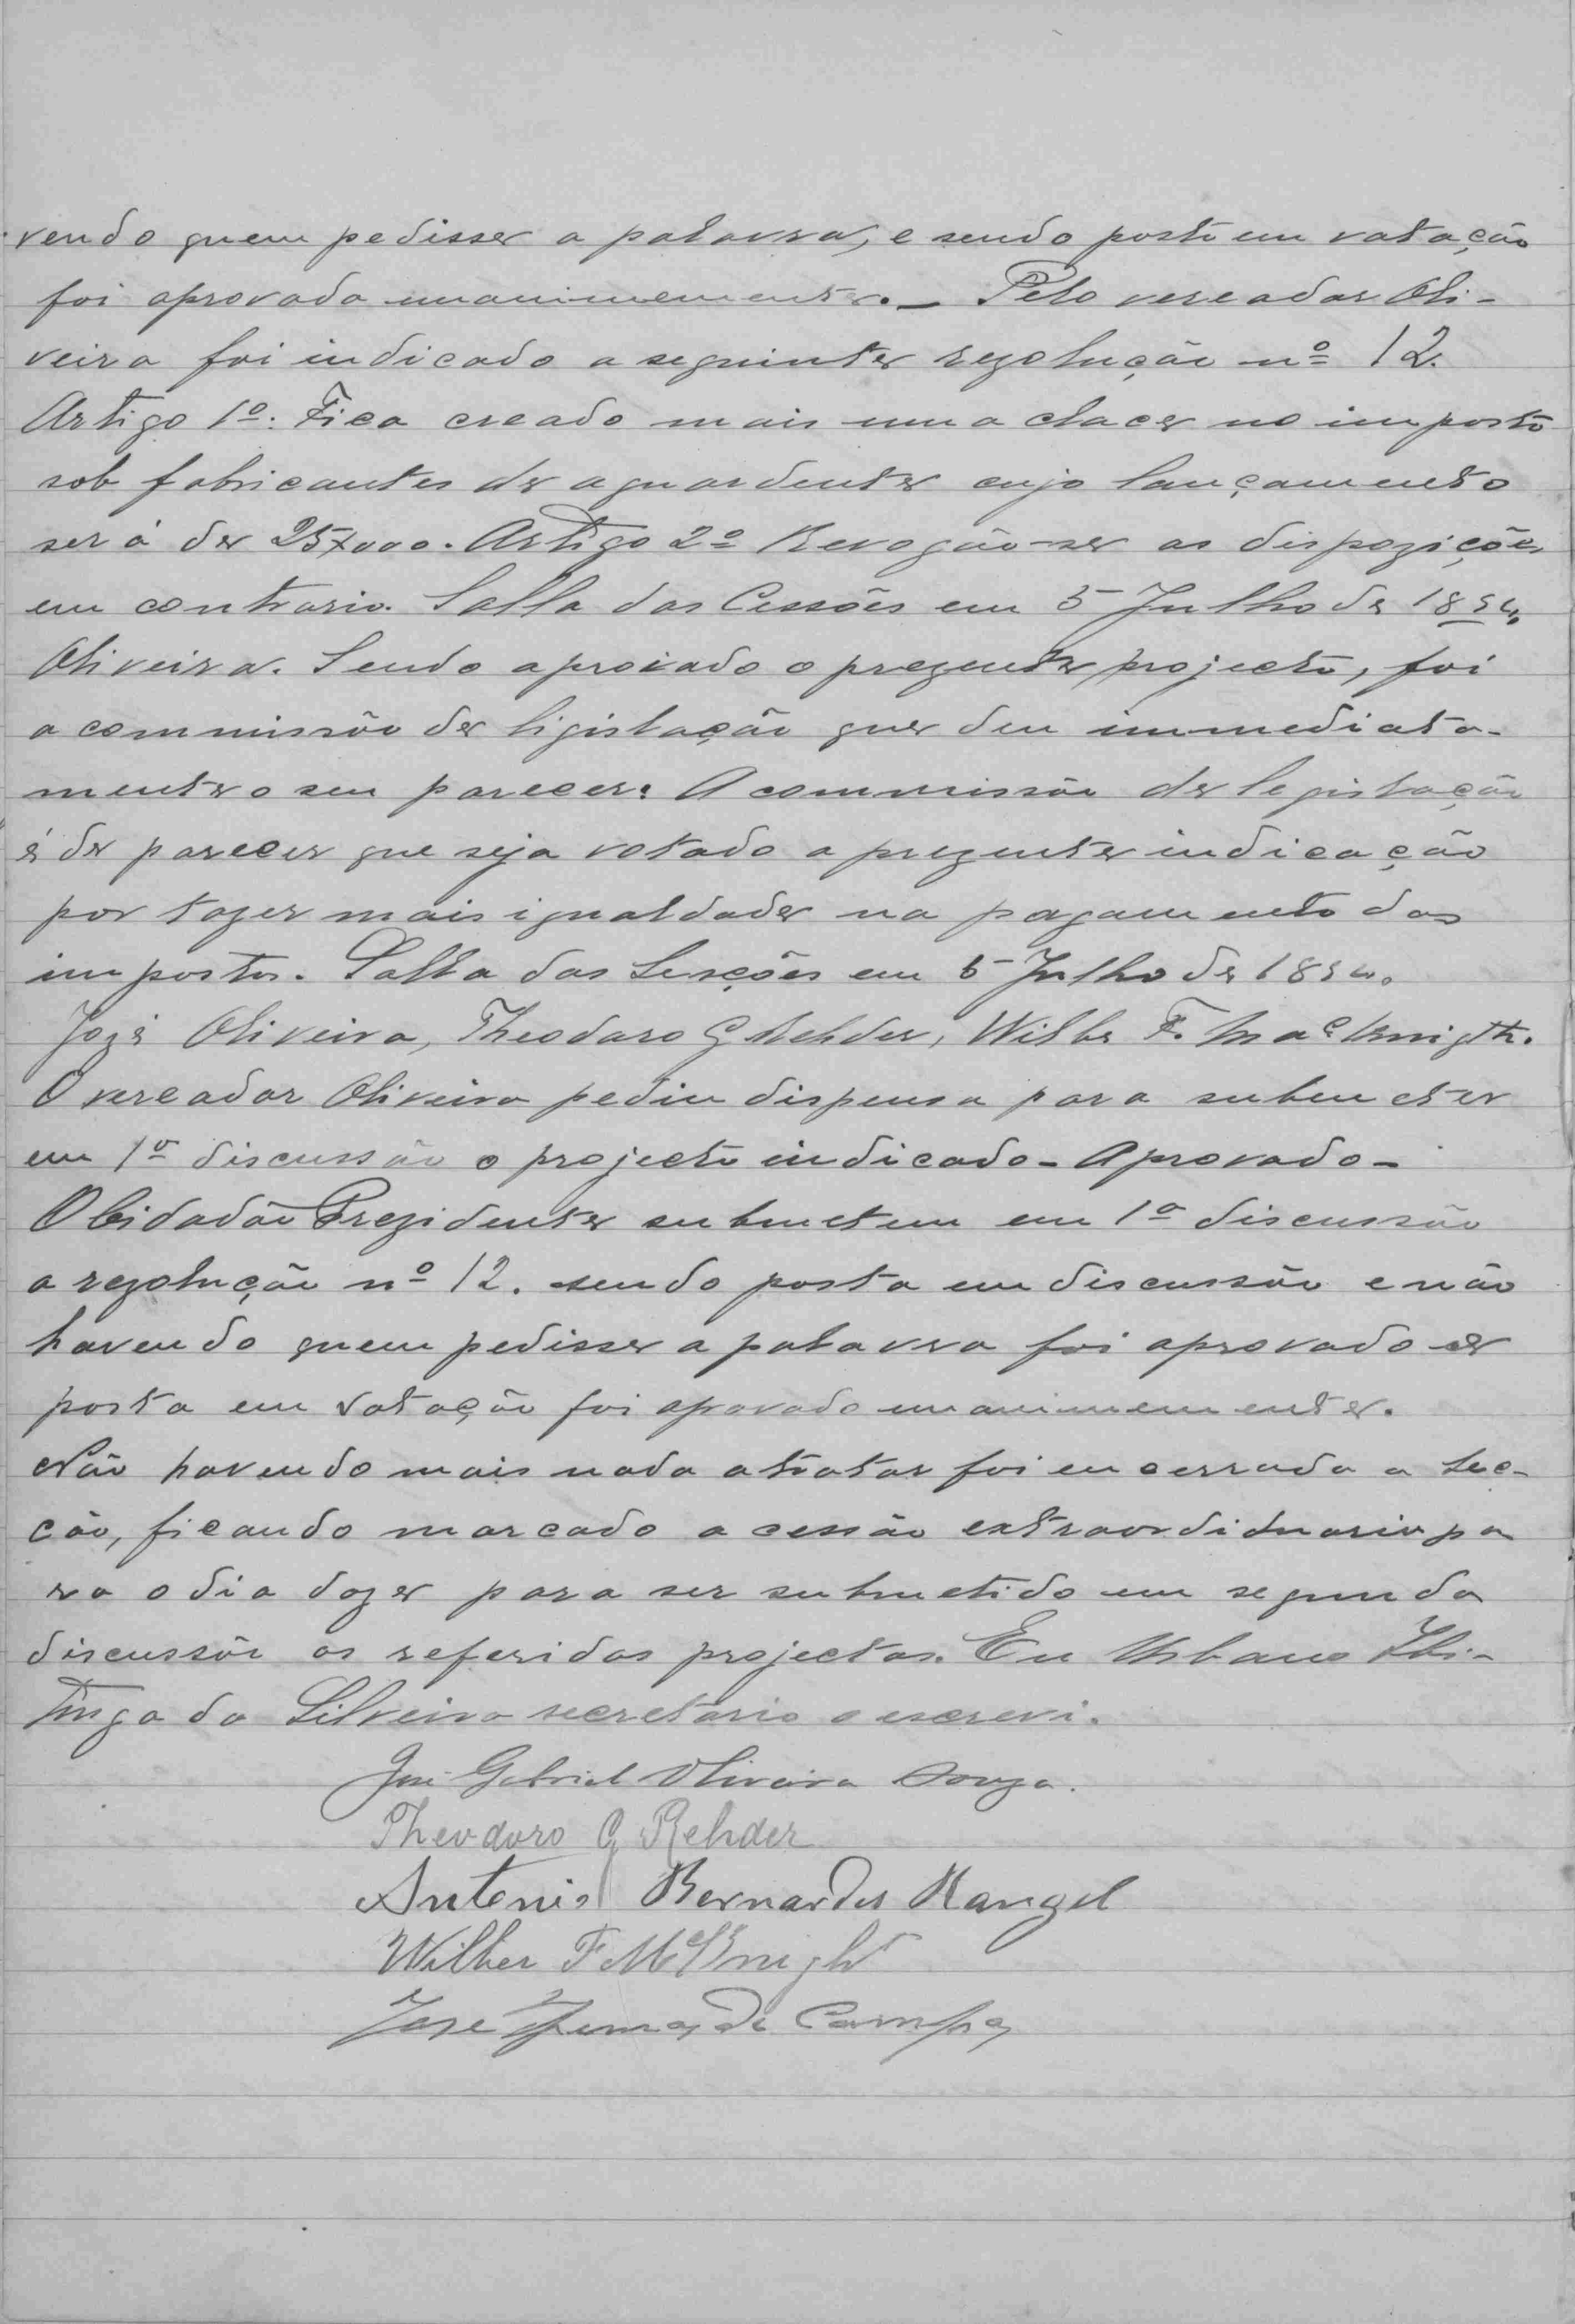 vendo quem pedisse a palavra, e sendo posto em votação
foi aprovada unanimemente. — Pelo vereador Oli-
veira foi indicado a seguinte rezolução nº 12.
Artigo 1º: Fica creado mais uma clace no imposto
sob fabricantes de aguardente cujo lançamento
será de 25$000. Artigo 2º Revogão-se as dispozições
em contrario. Salla das Cessões em 5 Julho de 1894.
Oliveira. Sendo apoiado o prezente projecto, foi
a commissão de ligislação que deu immediata-
mente o seu parecer: A commissão de legislação
é de parecer que seja votado a prezente indicação
por tazer mais igualdade na pagamento dos
impostos. Salla das Sesções em 5 Julho de 1894.
Jozé Oliveira, Theodoro G Rehder, Wilbr F. Mac Knigth.
O vereador Oliveira pediu dispensa para submeter
em 1ª discussão o projecto indicado - Aprovado -
O Cidadão Prezidente submeteu em 1ª discussão
a rezolução nº 12. sendo posta em discussão e não
havendo quem pedisse a palavra foi aprovado e
posta em votação foi aprovado unanimemente.
Não havendo mais nada a tratar foi encerrada a sec-
ção, ficando marcado a cessão extraordidnaria pa
ra o dia doze para ser submetido em segunda
discussão os referidos projectos. Eu Urbano Ibi-
tinga da Silveira secretario o escrevi.
José Gabriel Oliveira Souza.
Theodoro G Rehder
Antonio Bernardes Rangel
Wilber F McKnight
Jose de Campos